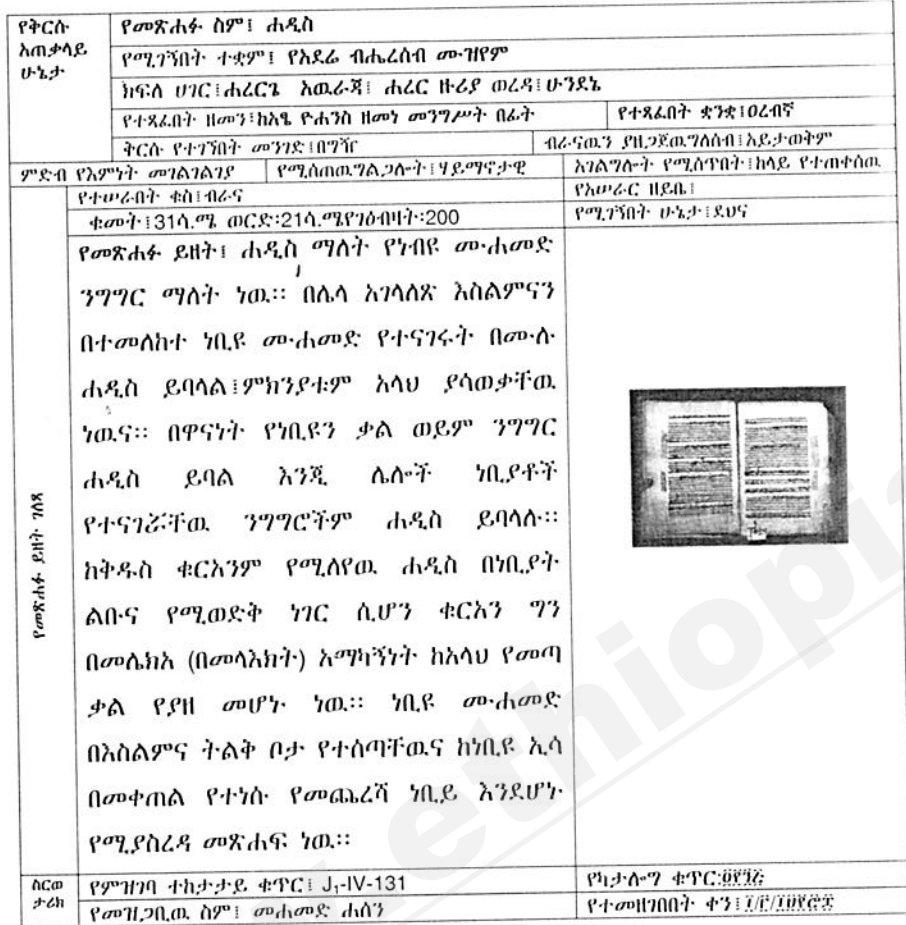 የቅርሱ
አጠቃላይ
ሁኔታ
የመጽሐፉ ስም፤ ሐዲስ
የሚገኝበት ተቋም፤ የአደሬ ብሔረሰብ ሙዝየም
ክፍለ ሀገር፤ሐረርጌ አዉራጃ፤ ሐረር ዙሪያ ወረዳ፤ሁንደኔ
የተጻፈበት ዘመን፡ከአፄ ዮሐንስ ዘመነ መንግሥት በፊት
የተጻፈበት ቋንቋ፤ዐረብኛ
ቅርሱ የተገኘበት መንገድ፤በግዥ
ብራናዉን ያዘጋጀዉግለሰብ፤አይታወቅም
ምድብ የእምነት መገልገልገያ
የሚሰጠዉግልጋሎት፤ሃይማኖታዊ
አገልግሎት የሚሰጥበት፤ከላይ የተጠቀሰዉ
የተሠራበት ቁስ፤ብራና
የአሠራር ዘይቤ፤
ቁመት፤31ሳ.ሜ ወርድ፡21ሳ.ሜየገፅብዛት፡200
የሚገኝበት ሁኔታ፤ደህና
የመጽሐፉ ይዘት ገለጻ
የመጽሐፉ ይዘት፤ ሐዲስ ማለት የነብዩ ሙሐመድ
ንግግር ማለት ነዉ። በሌላ አገላለጽ እስልምናን
በተመለከተ ነቢዩ ሙሐመድ የተናገሩት በሙሉ
ሐዲስ ይባላል፤ምክንያቱም አላህ ያሳወቃቸዉ
ነዉና። በዋናነት የነቢዩን ቃል ወይም ንግግር
ሐዲስ ይባል እንጂ ሌሎች ነቢያቶች
የተናገሯቸዉ ንግግሮችም ሐዲስ ይባላሉ።
ከቅዱስ ቁርአንም የሚለየዉ ሐዲስ በነቢያት
ልቡና የሚወድቅ ነገር ሲሆን ቁርአን ግን
በመሌክአ (በመላእክት) አማካኝነት ከአላህ የመጣ
ቃል የያዘ መሆኑ ነዉ። ነቢዩ ሙሐመድ
በእስልምና ትልቅ ቦታ የተሰጣቸዉና ከነቢዩ ኢሳ
በመቀጠል የተነሱ የመጨረሻ ነቢይ እንደሆኑ
የሚያስረዳ መጽሐፍ ነዉ።
ስርወ
ታሪክ
የምዝገባ ተከታታይ ቁጥር፤ J₁-IV-131
የካታሎግ ቁጥር:
የመዝጋቢዉ ስም፤ መሐመድ ሐሰን
የተመዘገበበት ቀን፤
ethiopia